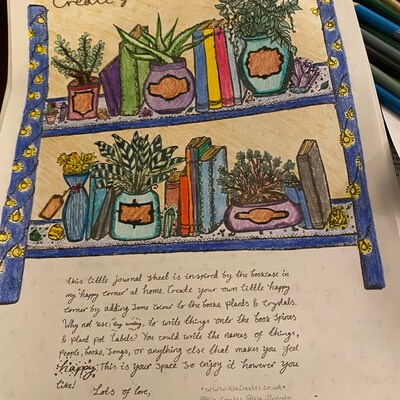 Creating
This little journal sheet is inspired by the bookcase in
my 'happy corner' at home. Create your own little happy
corner by adding some colour to the books, plants & crystals.
Why not use tiny writing to write things onto the book spines
& plant pot labels? You could write the names of things,
people, books, songs, or anything else that makes you feel
happy. This is your space so enjoy it however you
like!
Lots of love,